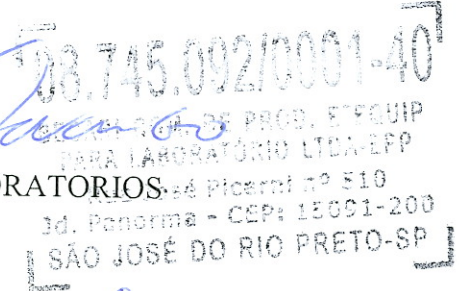 08.745.092/0001-40
DE PROD. E EQUIP
PARA LABORATÓRIO LTDA-EPP
RATORIOS
José Picerni nº 510
Jd. Panorma - CEP: 15091-200
SÃO JOSÉ DO RIO PRETO-SP